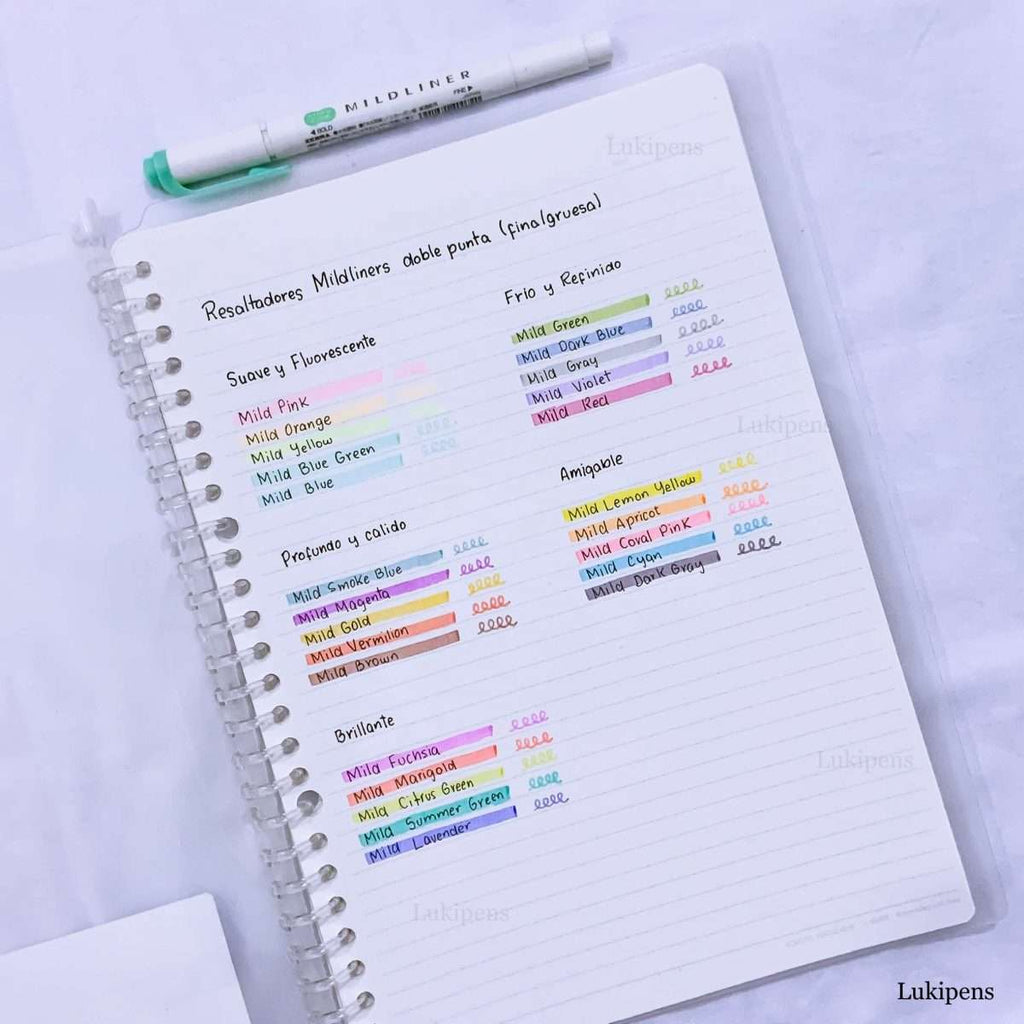 MILDLINER
BOLD
FINE
ZEBRA
Lukipens
Resaltadores Mildliners doble punta (fina/gruesa)
Suave y Fluorescente
Mild Pink
Mild Orange
Mild Yellow
Mild Blue Green
Mild Blue
Frio y Refinido
Mild Green
Mild Dark Blue
Mild Gray
Mild Violet
Mild Red
Lukipens
Profundo y calido
Mild Smoke Blue
Mild Magenta
Mild Gold
Mild Vermilion
Mild Brown
Amigable
Mild Lemon Yellow
Mild Apricot
Mild Coral Pink
Mild Cyan
Mild Dark Gray
Brillante
Mild Fuchsia
Mild Marigold
Mild Citrus Green
Mild Summer Green
Mild Lavender
Lukipens
Lukipens
Lukipens